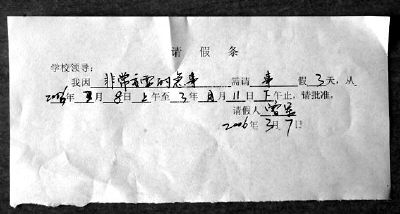 请 假 条
学校领导:
我因 非常重要的急事 需请 事 假 3 天, 从
2006 年 3 月 8 日 上 午至 3 年 月 11 日 下 午止, 请批准。
请假人
2006 年 3 月 7 日